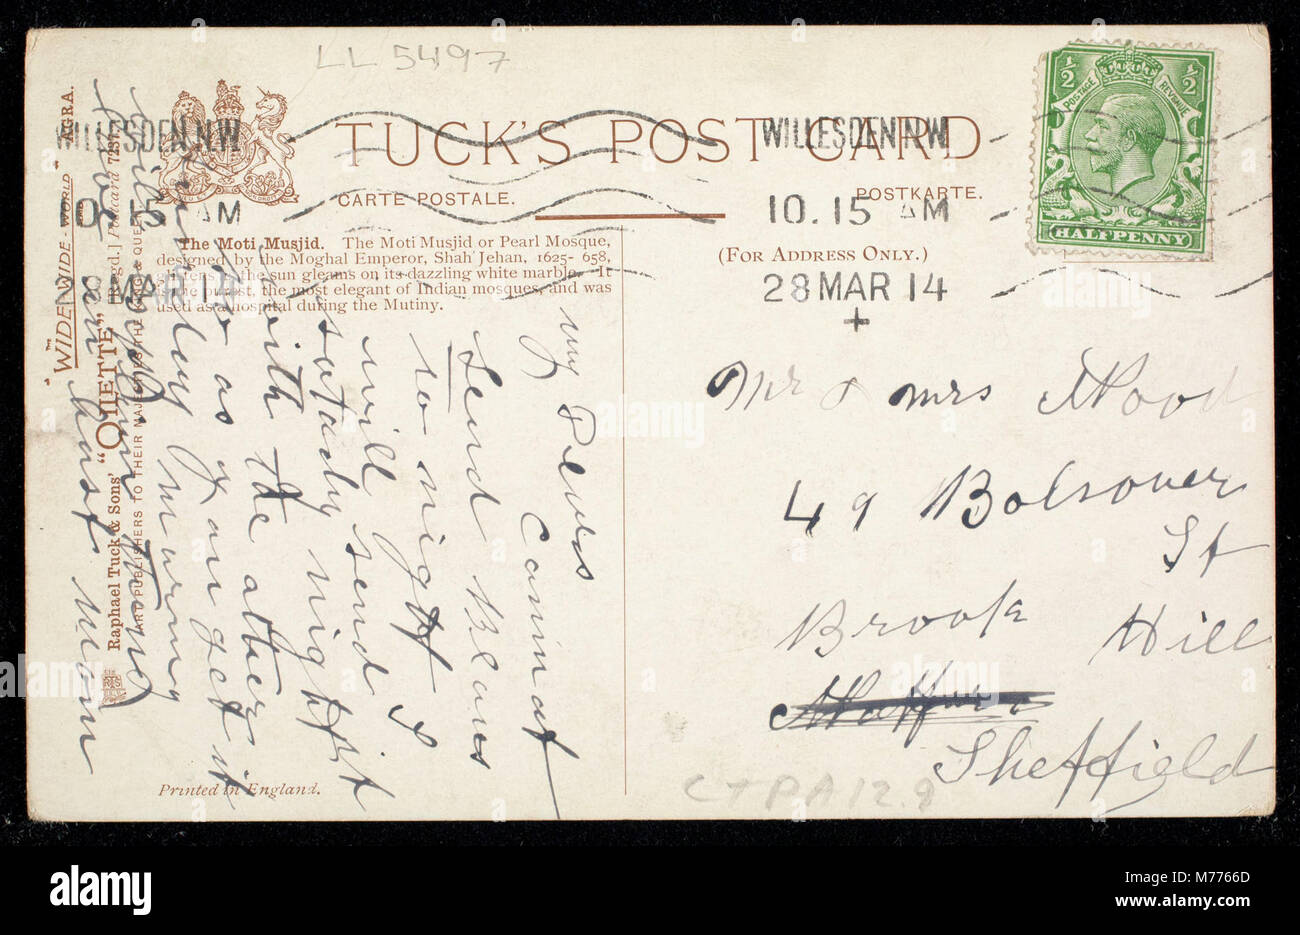 LL 5497
TUCK'S POST CARD
CARTE POSTALE.
POSTKARTE.
(FOR ADDRESS ONLY.)
WILLESDEN.N.W
10.15 AM
28 MAR 14
WILLESDEN.N.W
10.15 AM
28 MAR 14
+
½ ½
POSTAGE REVENUE
HALFPENNY
The Moti Musjid. The Moti Musjid or Pearl Mosque,
designed by the Moghal Emperor, Shah Jehan, 1625-658,
glistens in the sun gleams on its dazzling white marble. It
the purest, the most elegant of Indian mosques, and was
used as a hospital during the Mutiny.
my
I Cannot
Send Blous
to night I
will send it
safady night
with the other
as you get it
morning
Mr & Mrs Wood
49 Bolsover
St
Brook Hill
Sheffield
THE "WIDE-WIDE-WORLD" AGRA.
Raphael Tuck & Sons' "OILETTE" [Regd.] Postcard
ART PUBLISHERS TO THEIR MAJESTIES THE KING & QUEEN
Printed in England.
CTPA12.9
alamy
Image ID: M7766D
www.alamy.com